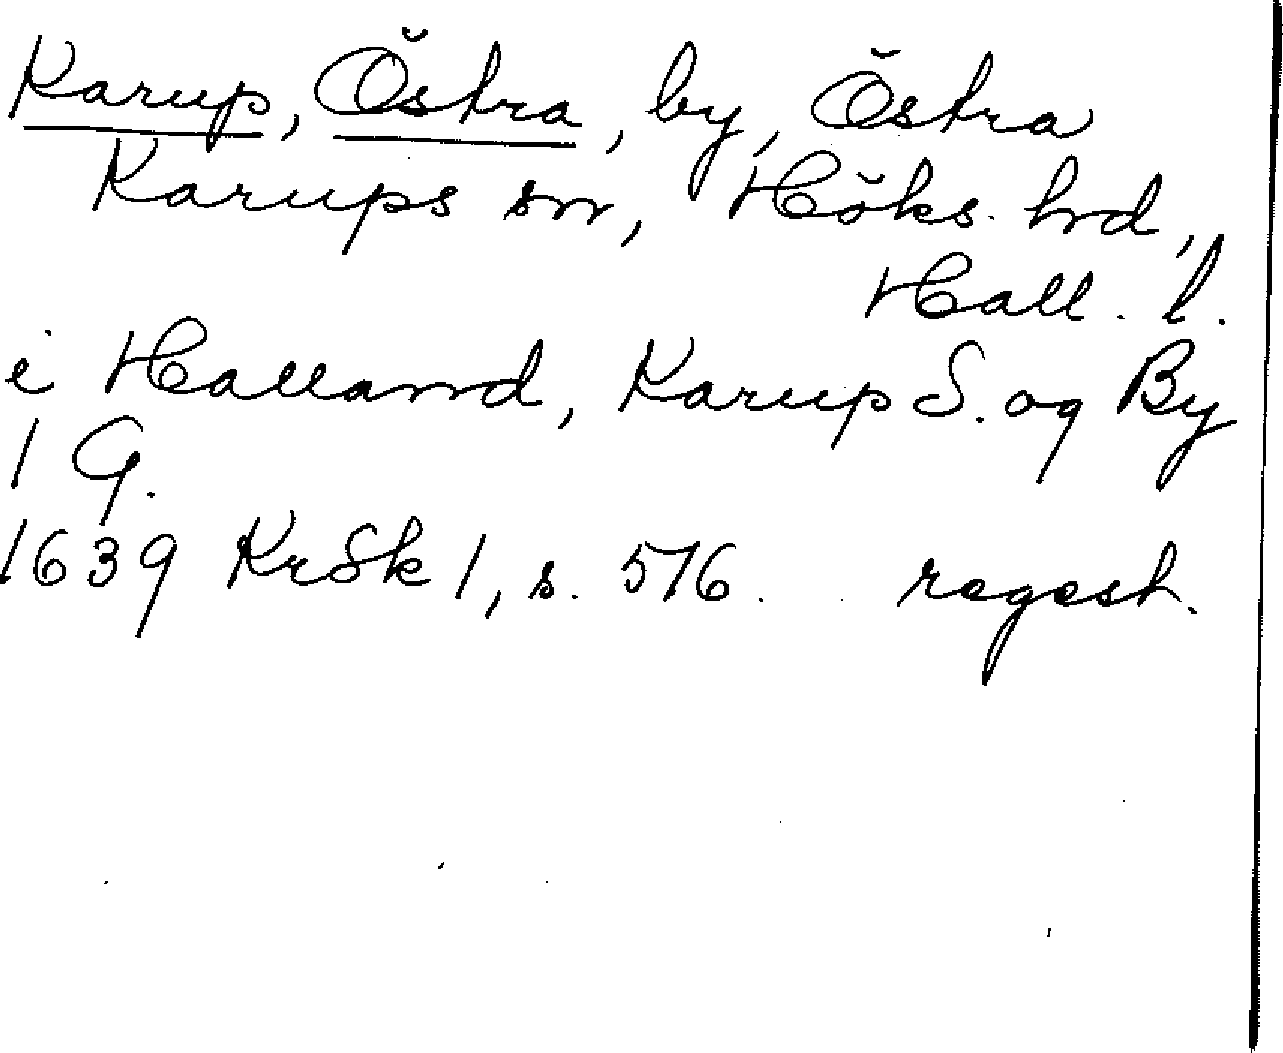 Karup, Östra, by, Östra
Karups sn, Höks hrd,
Hall. l.
i Halland, Karup S. og By
1 G.
1639 KrSk 1, s. 576. regest.